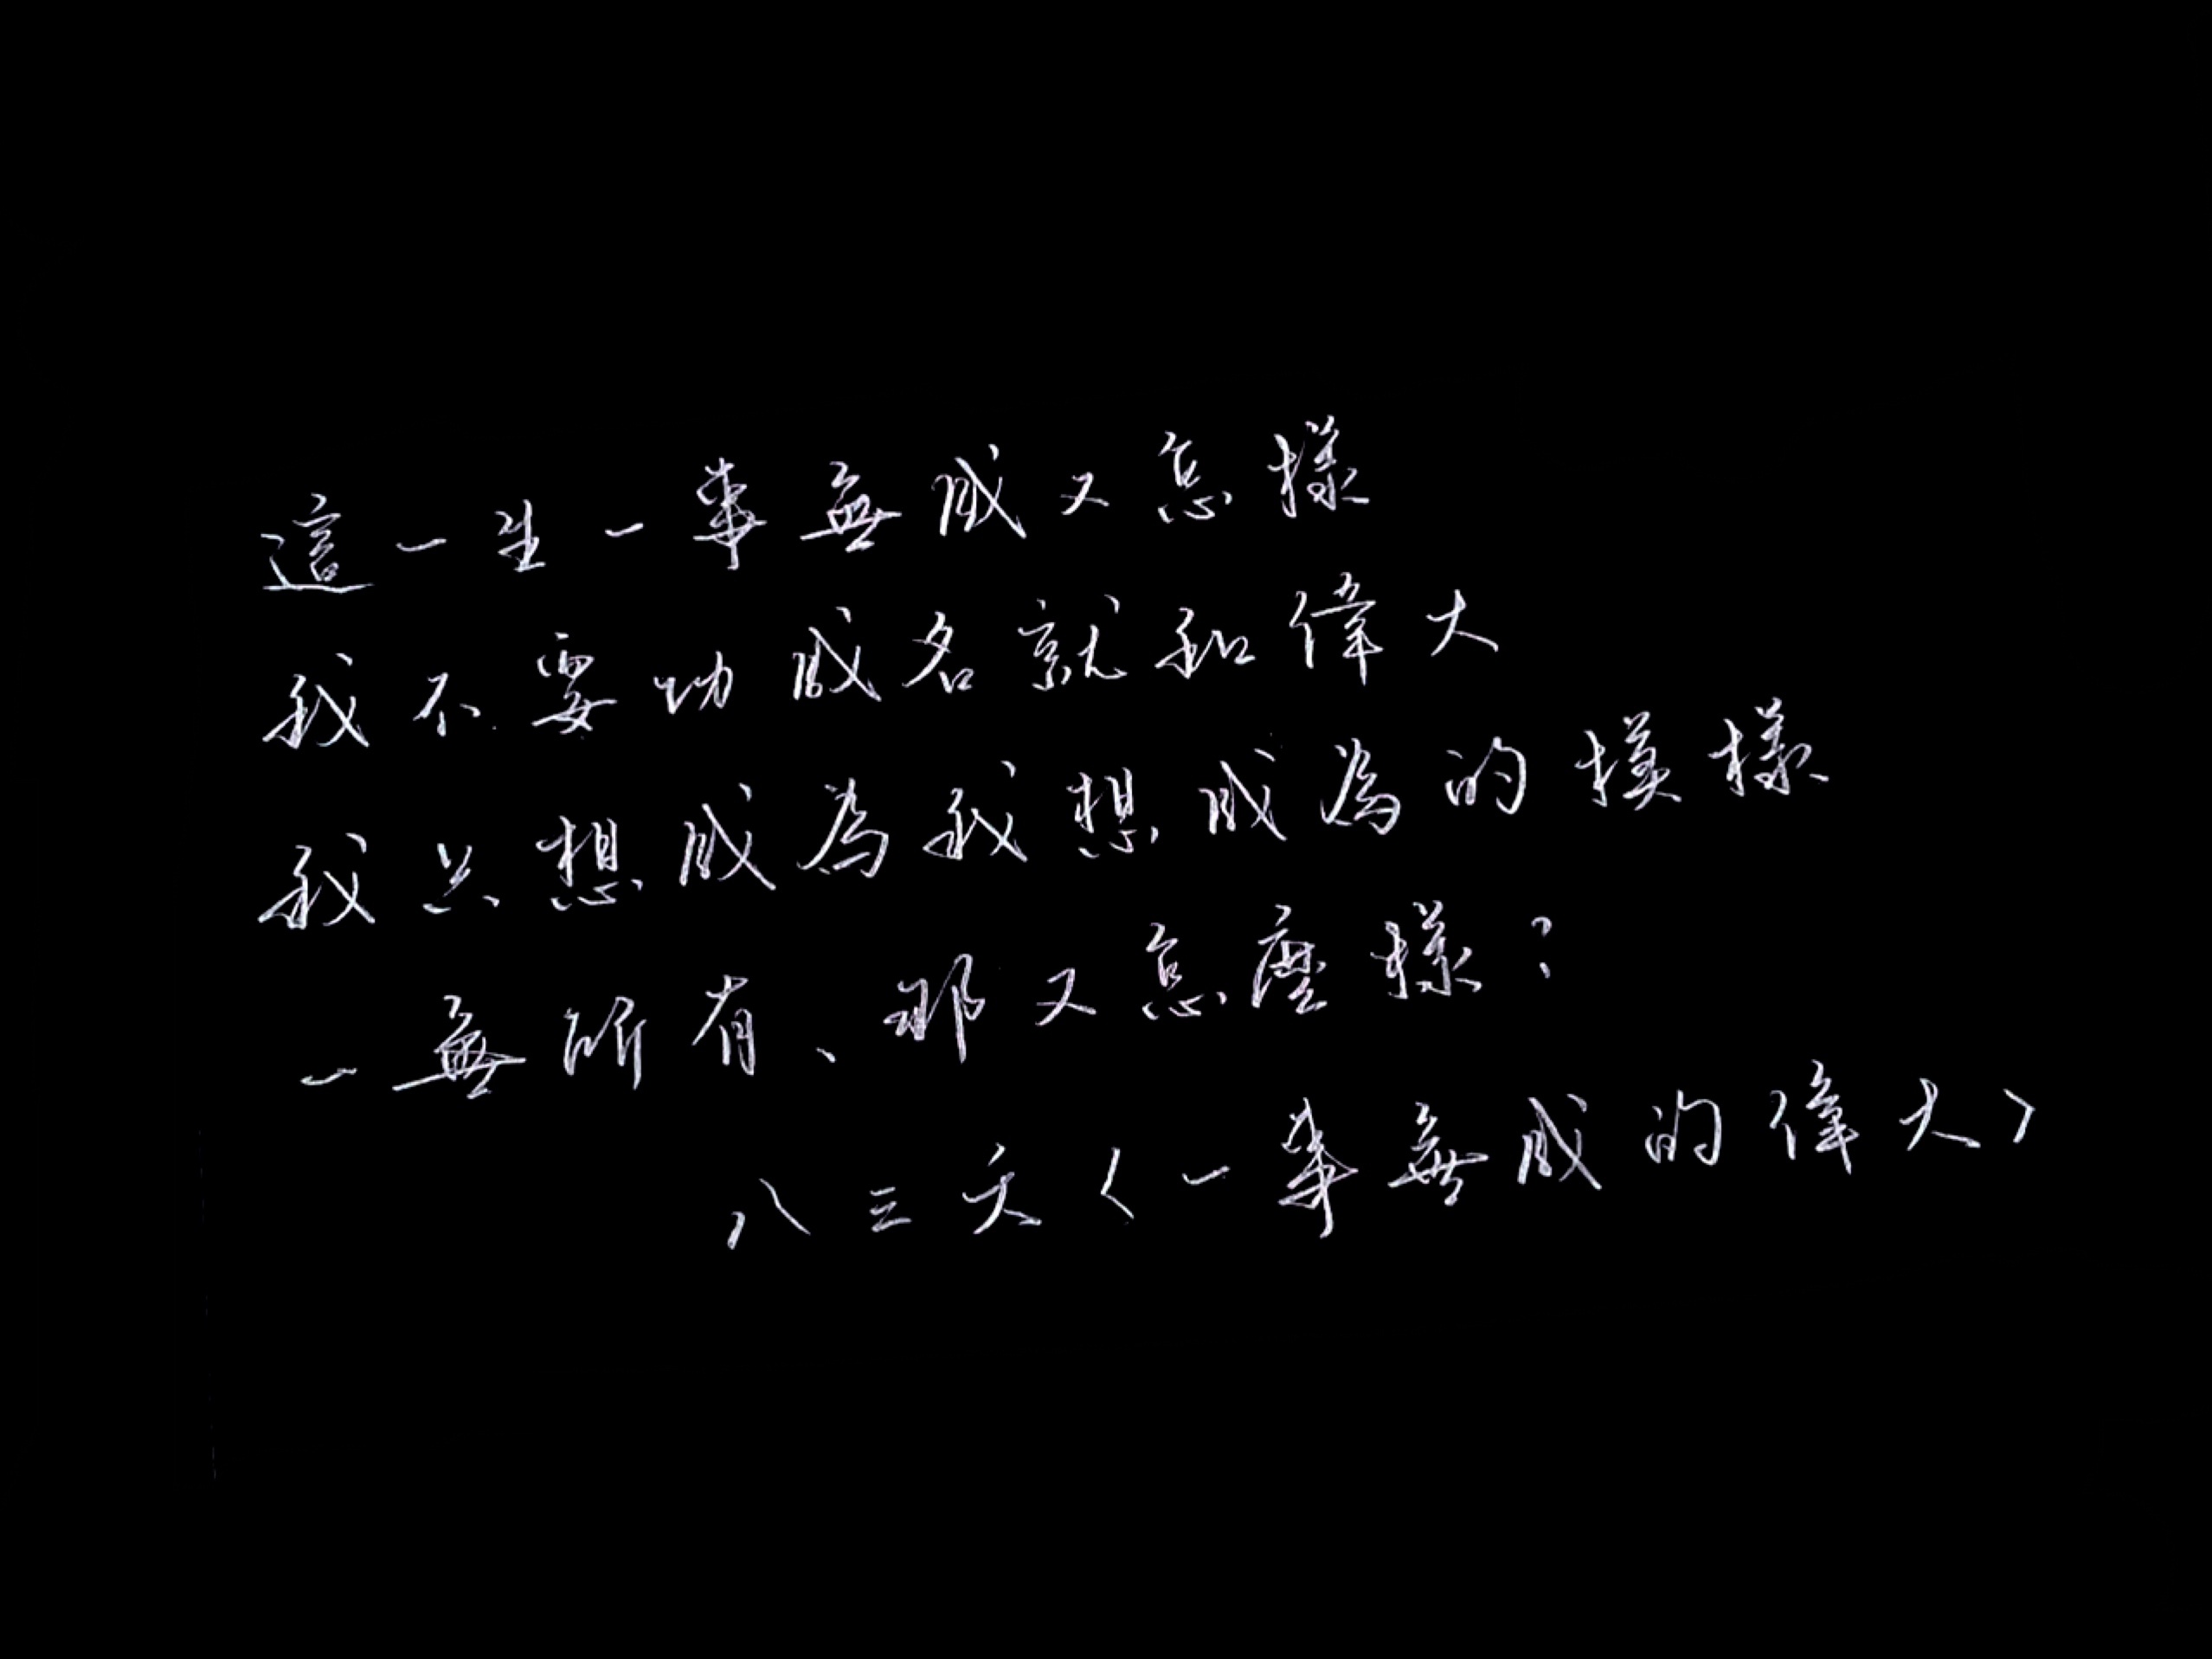 這一生一事無成又怎樣
我不要功成名就和偉大
我只想成為我想成為的模樣
一無所有、那又怎麼樣?
八三夭〈一事無成的偉大〉